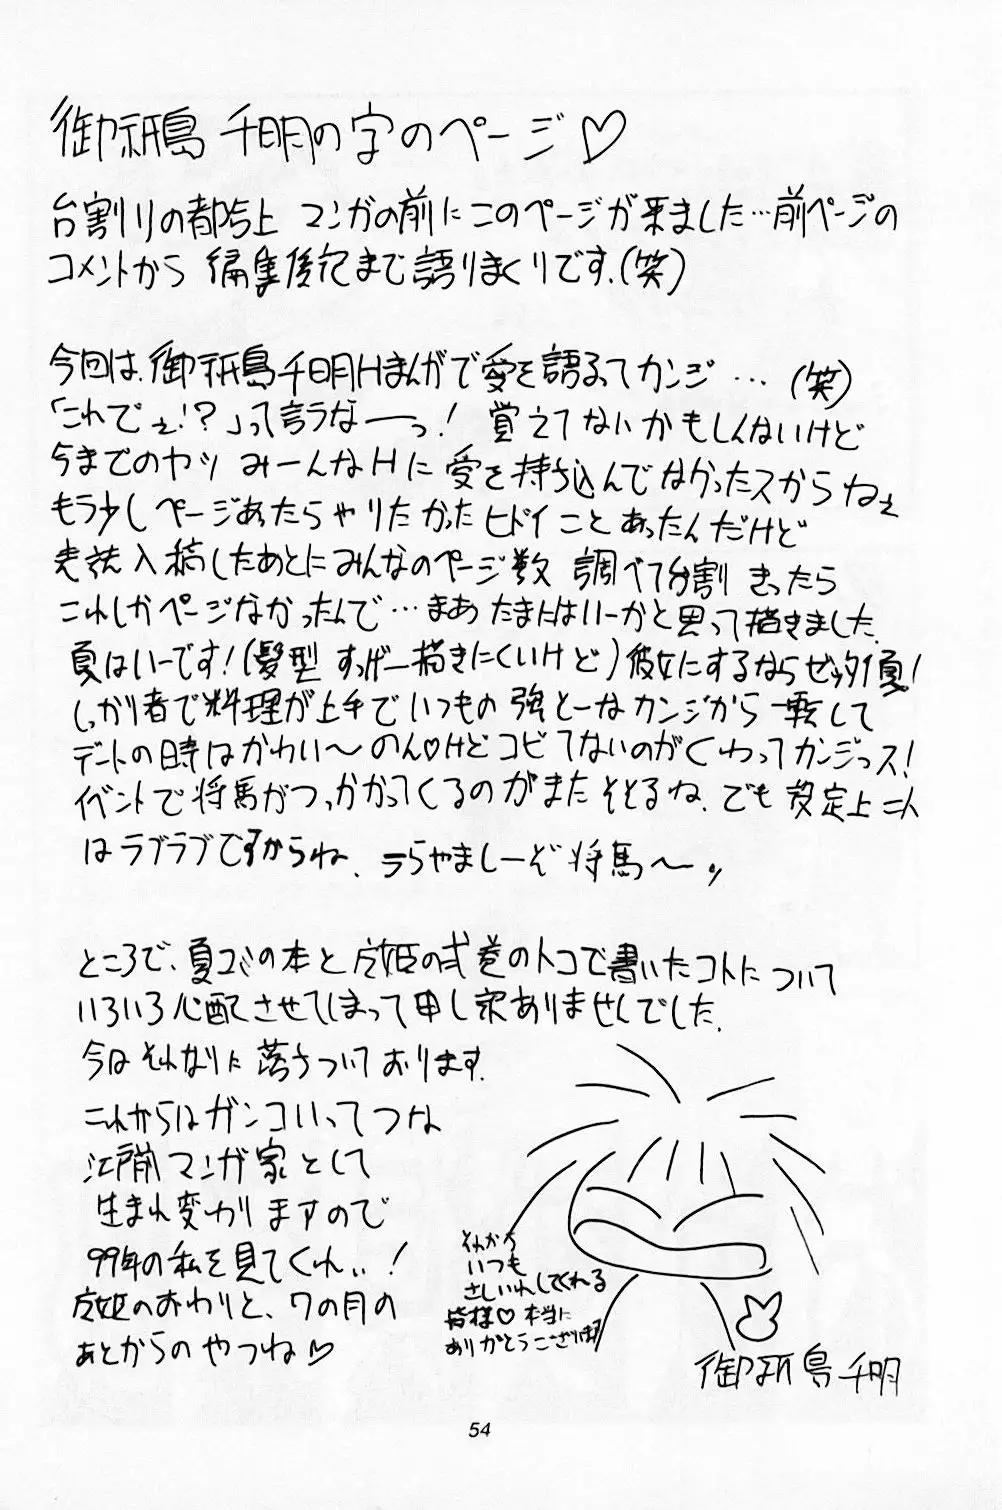 御祇島 千明の字のページ♡
台割りの都合上 マンガの前にこのページが来ました…前ページの
コメントから 編集後記まで語りまくりです.(笑)
今回は、御祇島千明Hまんがで愛を語るってカンジ…(笑)
「これでぇ!?」って言うなーっ! 覚えてないかもしんないけど
今までのヤツ みーんなHに愛を持ち込んでなかったスからねぇ
もう少しページあったらやりたかったヒドイことあったんだけど
表紙入稿したあとにみんなのページ数 調べて台割きったら
これしかページなかったんで…まあたまにはいーかと思って描きました.
夏はいーです!(髪型 すっげー描きにくいけど)彼女にするならゼッタイ夏!
しっかり者で料理が上手でいつもの強とーなカンジから一転して
デートの時はかわい〜のん♡けどコビてないのがくわってカンジっス!
イベントで将馬がつっかかってくるのがまたそそるね.でも設定上二人
はラブラブですからね. うらやましーぞ将馬〜ッ
ところで、夏コミの本と 姫の弐巻のトコで書いたコトについて
いろいろ心配させてしまって申し訳ありませんでした.
今はそれなりに落ちついております.
これからはガンコいってつな
江戸前マンガ家として
生まれ変わりますので
99年の私を見てくれぃ!
姫のおわりと、ワの月の
あとからのやつね♡
それから
いつも
さしいれしてくれる
皆様♡本当に
ありがとうございます
御祇島千明
54